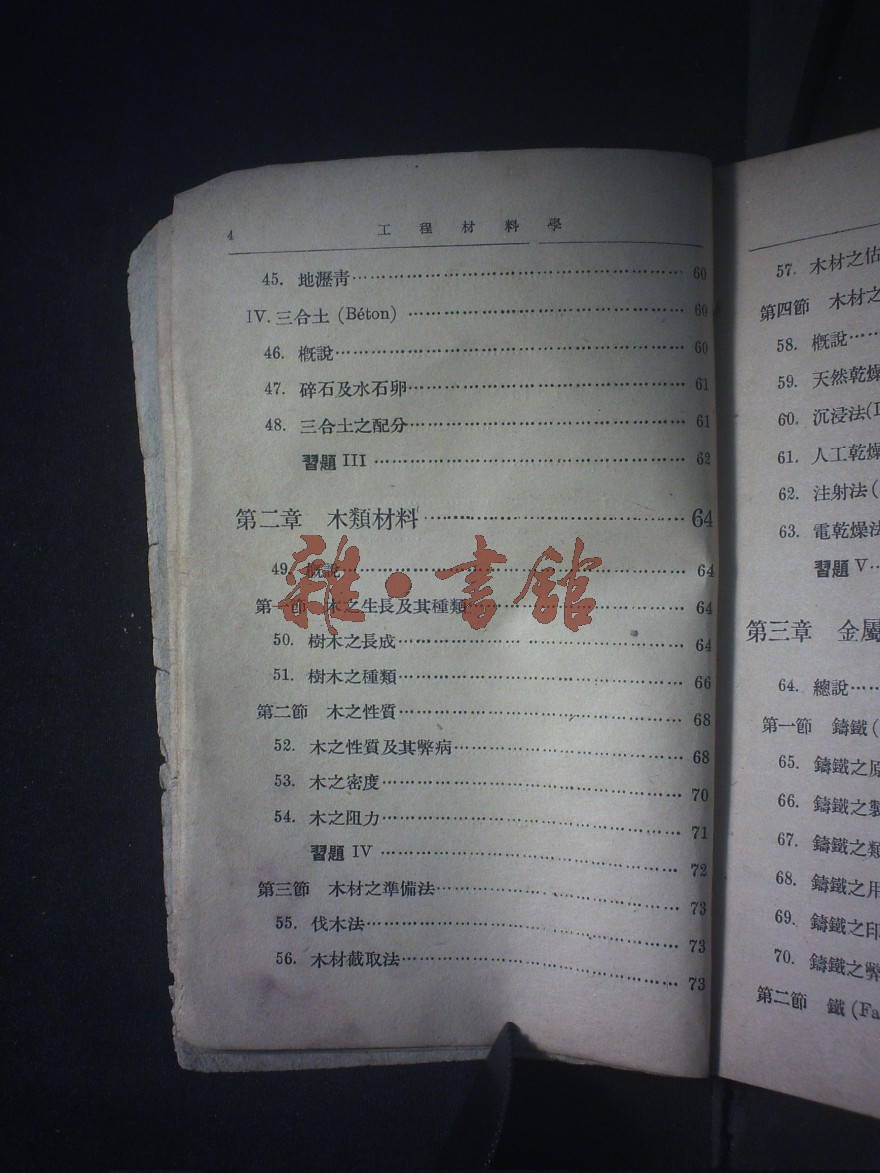 4 工程材料學
45. 地瀝青 60
IV. 三合土 (Béton) 60
46. 概說 60
47. 碎石及水石卵 61
48. 三合土之配分 61
習題 III 62
第二章 木類材料 64
49. 概說 64
第一節 木之生長及其種類 64
50. 樹木之長成 64
51. 樹木之種類 66
第二節 木之性質 68
52. 木之性質及其弊病 68
53. 木之密度 70
54. 木之阻力 71
習題 IV 72
第三節 木材之準備法 73
55. 伐木法 73
56. 木材截取法 73
雜·書館
57. 木材之估
第四節 木材之
58. 概說
59. 天然乾燥
60. 沉浸法(I
61. 人工乾燥
62. 注射法(
63. 電乾燥法
習題 V
第三章 金屬
64. 總說
第一節 鑄鐵(
65. 鑄鐵之原
66. 鑄鐵之製
67. 鑄鐵之類
68. 鑄鐵之用
69. 鑄鐵之印
70. 鑄鐵之弊
第二節 鐵(Fa